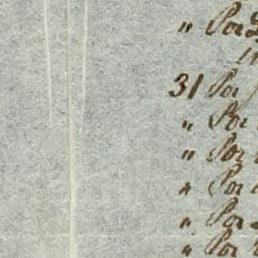 " Por
31 Por
" Por
" Por
" Por
" Por
" Por